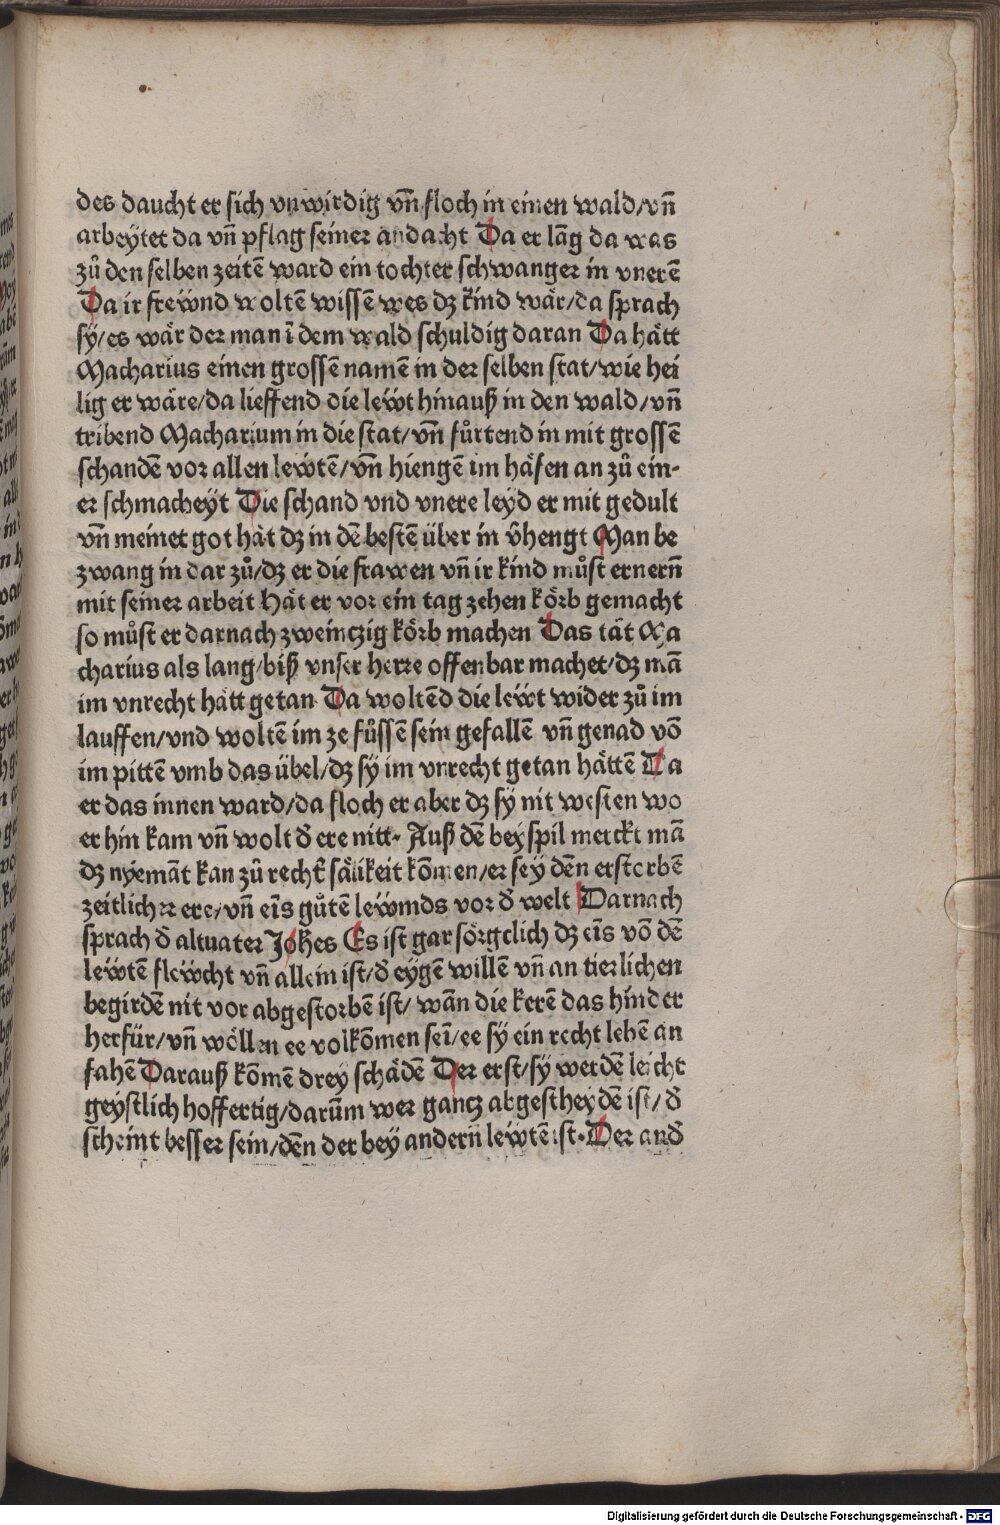 des daucht er sich vnwirdig vn̄ floch in einen wald/vn̄
arbeÿtet da vn̄ pflag seiner andacht Da er lāg da was
zů den selben zeitē ward ein tochter schwanger in vnerē
Da ir freẅnd woltē wissē wes dz kind wär/da sprach
sÿ/es wär der man ī dem wald schuldig daran Da hätt
Macharius einen grossē namē in der selben stat/wie hei
lig er wäre/da lieffend die leẅt hinauß in den wald/vn̄
tribend Macharium in die stat/vn̄ fůrtend in mit grossē
schandē vor allen leẅtē/vn̄ hiengē im häfen an zů ein-
er schmacheÿt Die schand vnd vnere leÿd er mit gedult
vn̄ meinet got hät dz in dē bestē über in v̄hengt Man be
zwang in dar zů/dz er die frawen vn̄ ir kind můst ernern̄
mit seiner arbeit Hät er vor ein tag zehen körb gemacht
so můst er darnach zweinczig körb machen Das tät Ma
charius als lang/biß vnser herre offenbar machet/dz mā
im vnrecht hätt getan Da woltēd die leẅt wider zů im
lauffen/vnd woltē im ze fůssē sein gefallē vn̄ genad vō
im pittē vmb das übel/dz sÿ im vnrecht getan hättē Da
er das innen ward/da floch er aber dz sÿ nit westen wo
er hin kam vn̄ wolt d̄ ere nitt· Auß dē beÿspil merckt mā
dz nÿemāt kan zů recht̄ sälikeit kōmen/er seÿ dēn erstorbē
zeitlicher ere/vn̄ eīs gůtē leẅmds vor d̄ welt Darnach
sprach d̄ altuater Joh̄es Es ist gar sörgclich dz eīs vō dē
leẅtē fleẅcht vn̄ allein ist/d̄ eÿgē willē vn̄ an tierlichen
begirdē nit vor abgestorbē ist/ wān die kerē das hinder
herfür/vn̄ wöllen ee volkōmen seī/ee sÿ ein recht lebē an
fahē Darauß kōmē dreÿ schädē Der erst/sÿ werdē leicht
geÿstlich hoffertig/darūm wer gantz abgescheÿdē ist/ d̄
scheint besser sein/dēn der beÿ andern leẅtē ist· Der and̄
Digitalisierung gefördert durch die Deutsche Forschungsgemeinschaft - DFG